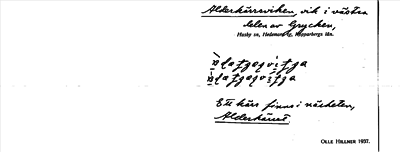 Alderkärrsviken, vik i västra
delen av Grycken,
Husby sn, Hedemora tg, Kopparbergs län.
Ett kärr finns i närheten,
Alderkärret
OLLE HILLNER 1937.